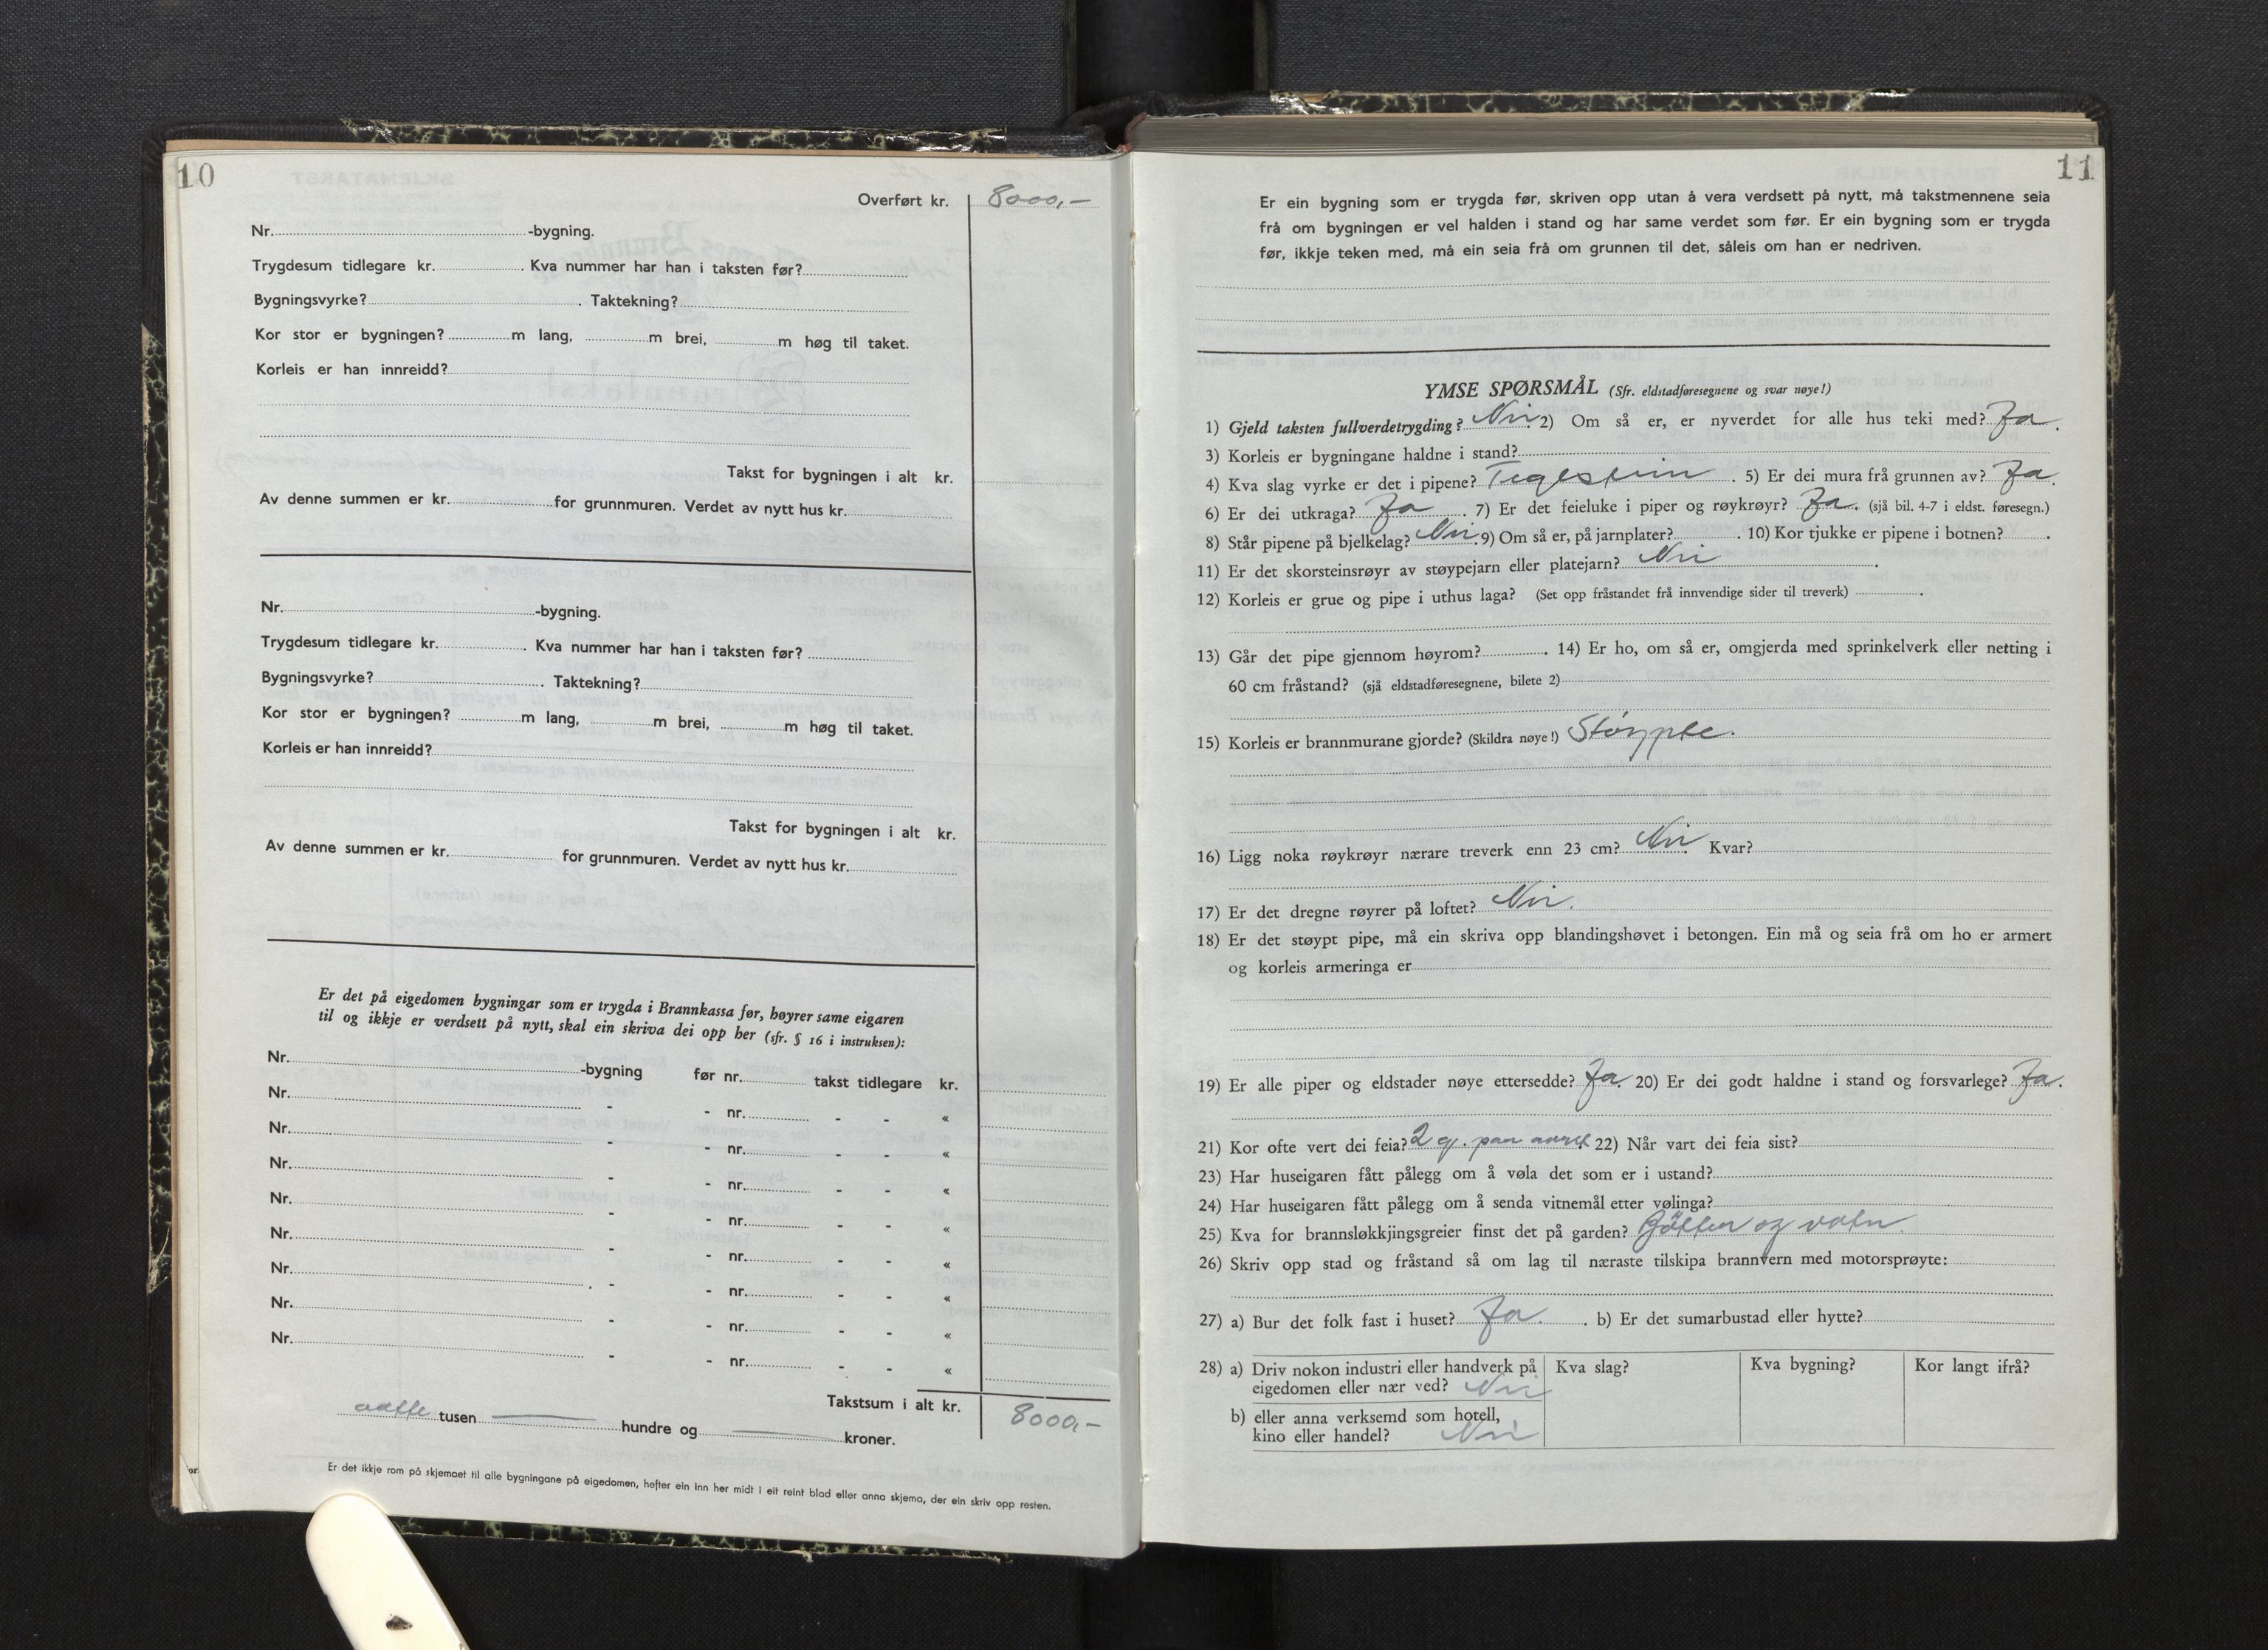 10
Overført kr. 8000,-
Nr. -bygning.
Trygdesum tidlegare kr. . Kva nummer har han i taksten før?
Bygningsvyrke? . Taktekning?
Kor stor er bygningen? m lang, m brei, m høg til taket.
Korleis er han innreidd?
Takst for bygningen i alt kr.
Av denne summen er kr. for grunnmuren. Verdet av nytt hus kr.
Nr. -bygning.
Trygdesum tidlegare kr. . Kva nummer har han i taksten før?
Bygningsvyrke? . Taktekning?
Kor stor er bygningen? m lang, m brei, m høg til taket.
Korleis er han innreidd?
Takst for bygningen i alt kr.
Av denne summen er kr. for grunnmuren. Verdet av nytt hus kr.
Er det på eigedomen bygningar som er trygda i Brannkassa før, høyrer same eigaren
til og ikkje er verdsett på nytt, skal ein skriva dei opp her (sfr. § 16 i instruksen):
Nr. -bygning før nr. takst tidlegare kr.
Nr. - - nr. - - «
Nr. - - nr. - - «
Nr. - - nr. - - «
Nr. - - nr. - - «
Nr. - - nr. - - «
Nr. - - nr. - - «
Nr. - - nr. - - «
Nr. - - nr. - - «
Takstsum i alt kr. 8000,-
aatte tusen — hundre og — kroner.
Er det ikkje rom på skjemaet til alle bygningane på eigedomen, hefter ein inn her midt i eit reint blad eller anna skjema, der ein skriv opp resten.
11
Er ein bygning som er trygda før, skriven opp utan å vera verdsett på nytt, må takstmennene seia
frå om bygningen er vel halden i stand og har same verdet som før. Er ein bygning som er trygda
før, ikkje teken med, må ein seia frå om grunnen til det, såleis om han er nedriven.
YMSE SPØRSMÅL (Sfr. eldstadføresegnene og svar nøye!)
1) Gjeld taksten fullverdetrygding? Nei. 2) Om så er, er nyverdet for alle hus teki med? Ja.
3) Korleis er bygningane haldne i stand?
4) Kva slag vyrke er det i pipene? Teglstein . 5) Er dei mura frå grunnen av? Ja.
6) Er dei utkraga? Ja . 7) Er det feieluke i piper og røykrøyr? Ja. (sjå bil. 4-7 i eldst. føresegn.)
8) Står pipene på bjelkelag? Nei. 9) Om så er, på jarnplater? . 10) Kor tjukke er pipene i botnen? .
11) Er det skorsteinsrøyr av støypejarn eller platejarn? Nei .
12) Korleis er grue og pipe i uthus laga? (Set opp fråstandet frå innvendige sider til treverk) .
13) Går det pipe gjennom høyrom? . 14) Er ho, om så er, omgjerda med sprinkelverk eller netting i
60 cm fråstand? (sjå eldstadføresegnene, bilete 2)
15) Korleis er brannmurane gjorde? (Skildra nøye!) Støypte.
16) Ligg noka røykrøyr nærare treverk enn 23 cm? Nei. Kvar?
17) Er det dregne røyrer på loftet? Nei.
18) Er det støypt pipe, må ein skriva opp blandingshøvet i betongen. Ein må og seia frå om ho er armert
og korleis armeringa er
19) Er alle piper og eldstader nøye ettersedde? Ja. 20) Er dei godt haldne i stand og forsvarlege? Ja.
21) Kor ofte vert dei feia? 2 g. paa aaret 22) Når vart dei feia sist?
23) Har huseigaren fått pålegg om å vøla det som er i ustand?
24) Har huseigaren fått pålegg om å senda vitnemål etter vølinga?
25) Kva for brannsløkkjingsgreier finst det på garden? Bøtter og vatn.
26) Skriv opp stad og fråstand så om lag til næraste tilskipa brannvern med motorsprøyte:
27) a) Bur det folk fast i huset? Ja. . b) Er det sumarbustad eller hytte?
28) a) Driv nokon industri eller handverk på Kva slag? Kva bygning? Kor langt ifrå?
eigedomen eller nær ved? Nei
b) eller anna verksemd som hotell,
kino eller handel? Nei